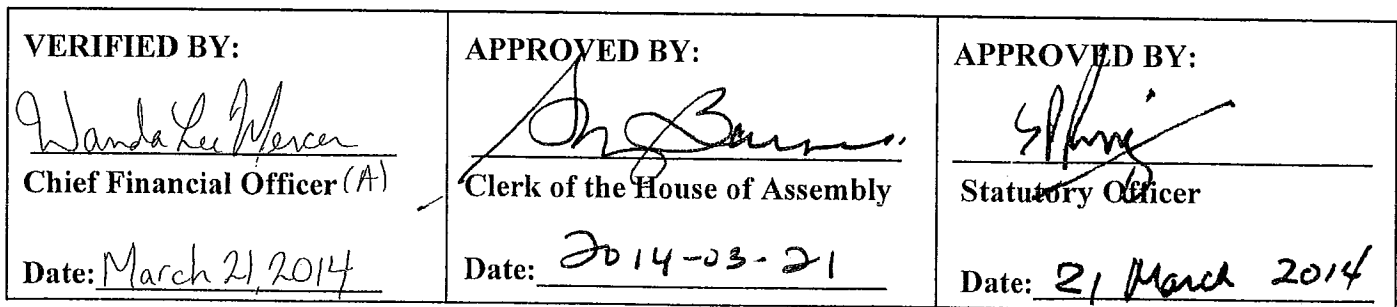 VERIFIED BY:
Wanda Lee Mercer
Chief Financial Officer (A)
Date: March 21, 2014
APPROVED BY:
Clerk of the House of Assembly
Date: 2014-03-21
APPROVED BY:
Statutory Officer
Date: 21 March 2014